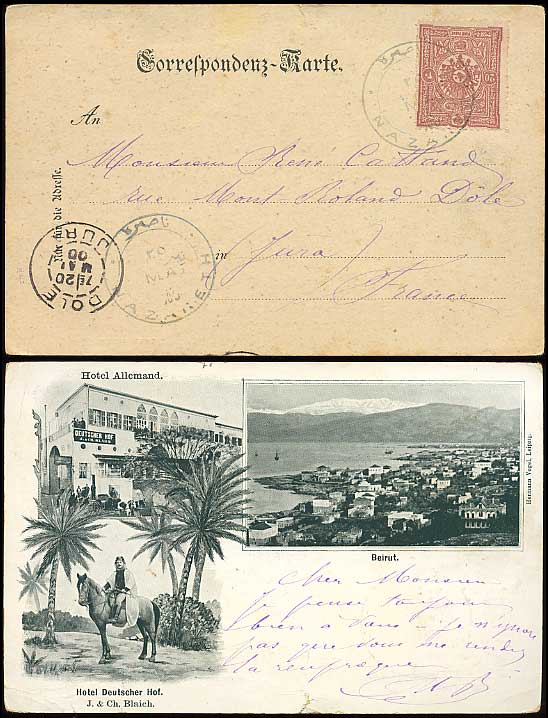 Correspondenz-Karte.
An
Monsieur René Cattand
rue Mont Roland Dôle
in Jura
France
Nur für die Adresse.
ناصرة
NAZARETH
MAI
DOLE
JURA
20
MAI
00
20
Hotel Allemand.
DEUTSCHER HOF
Hermann Vogel, Leipzig.
Beirut.
Cher Monsieur
Je pense toujours
bien à vous - je n'ignore
pas que vous me
Hotel Deutscher Hof.
J. & Ch. Blaich.